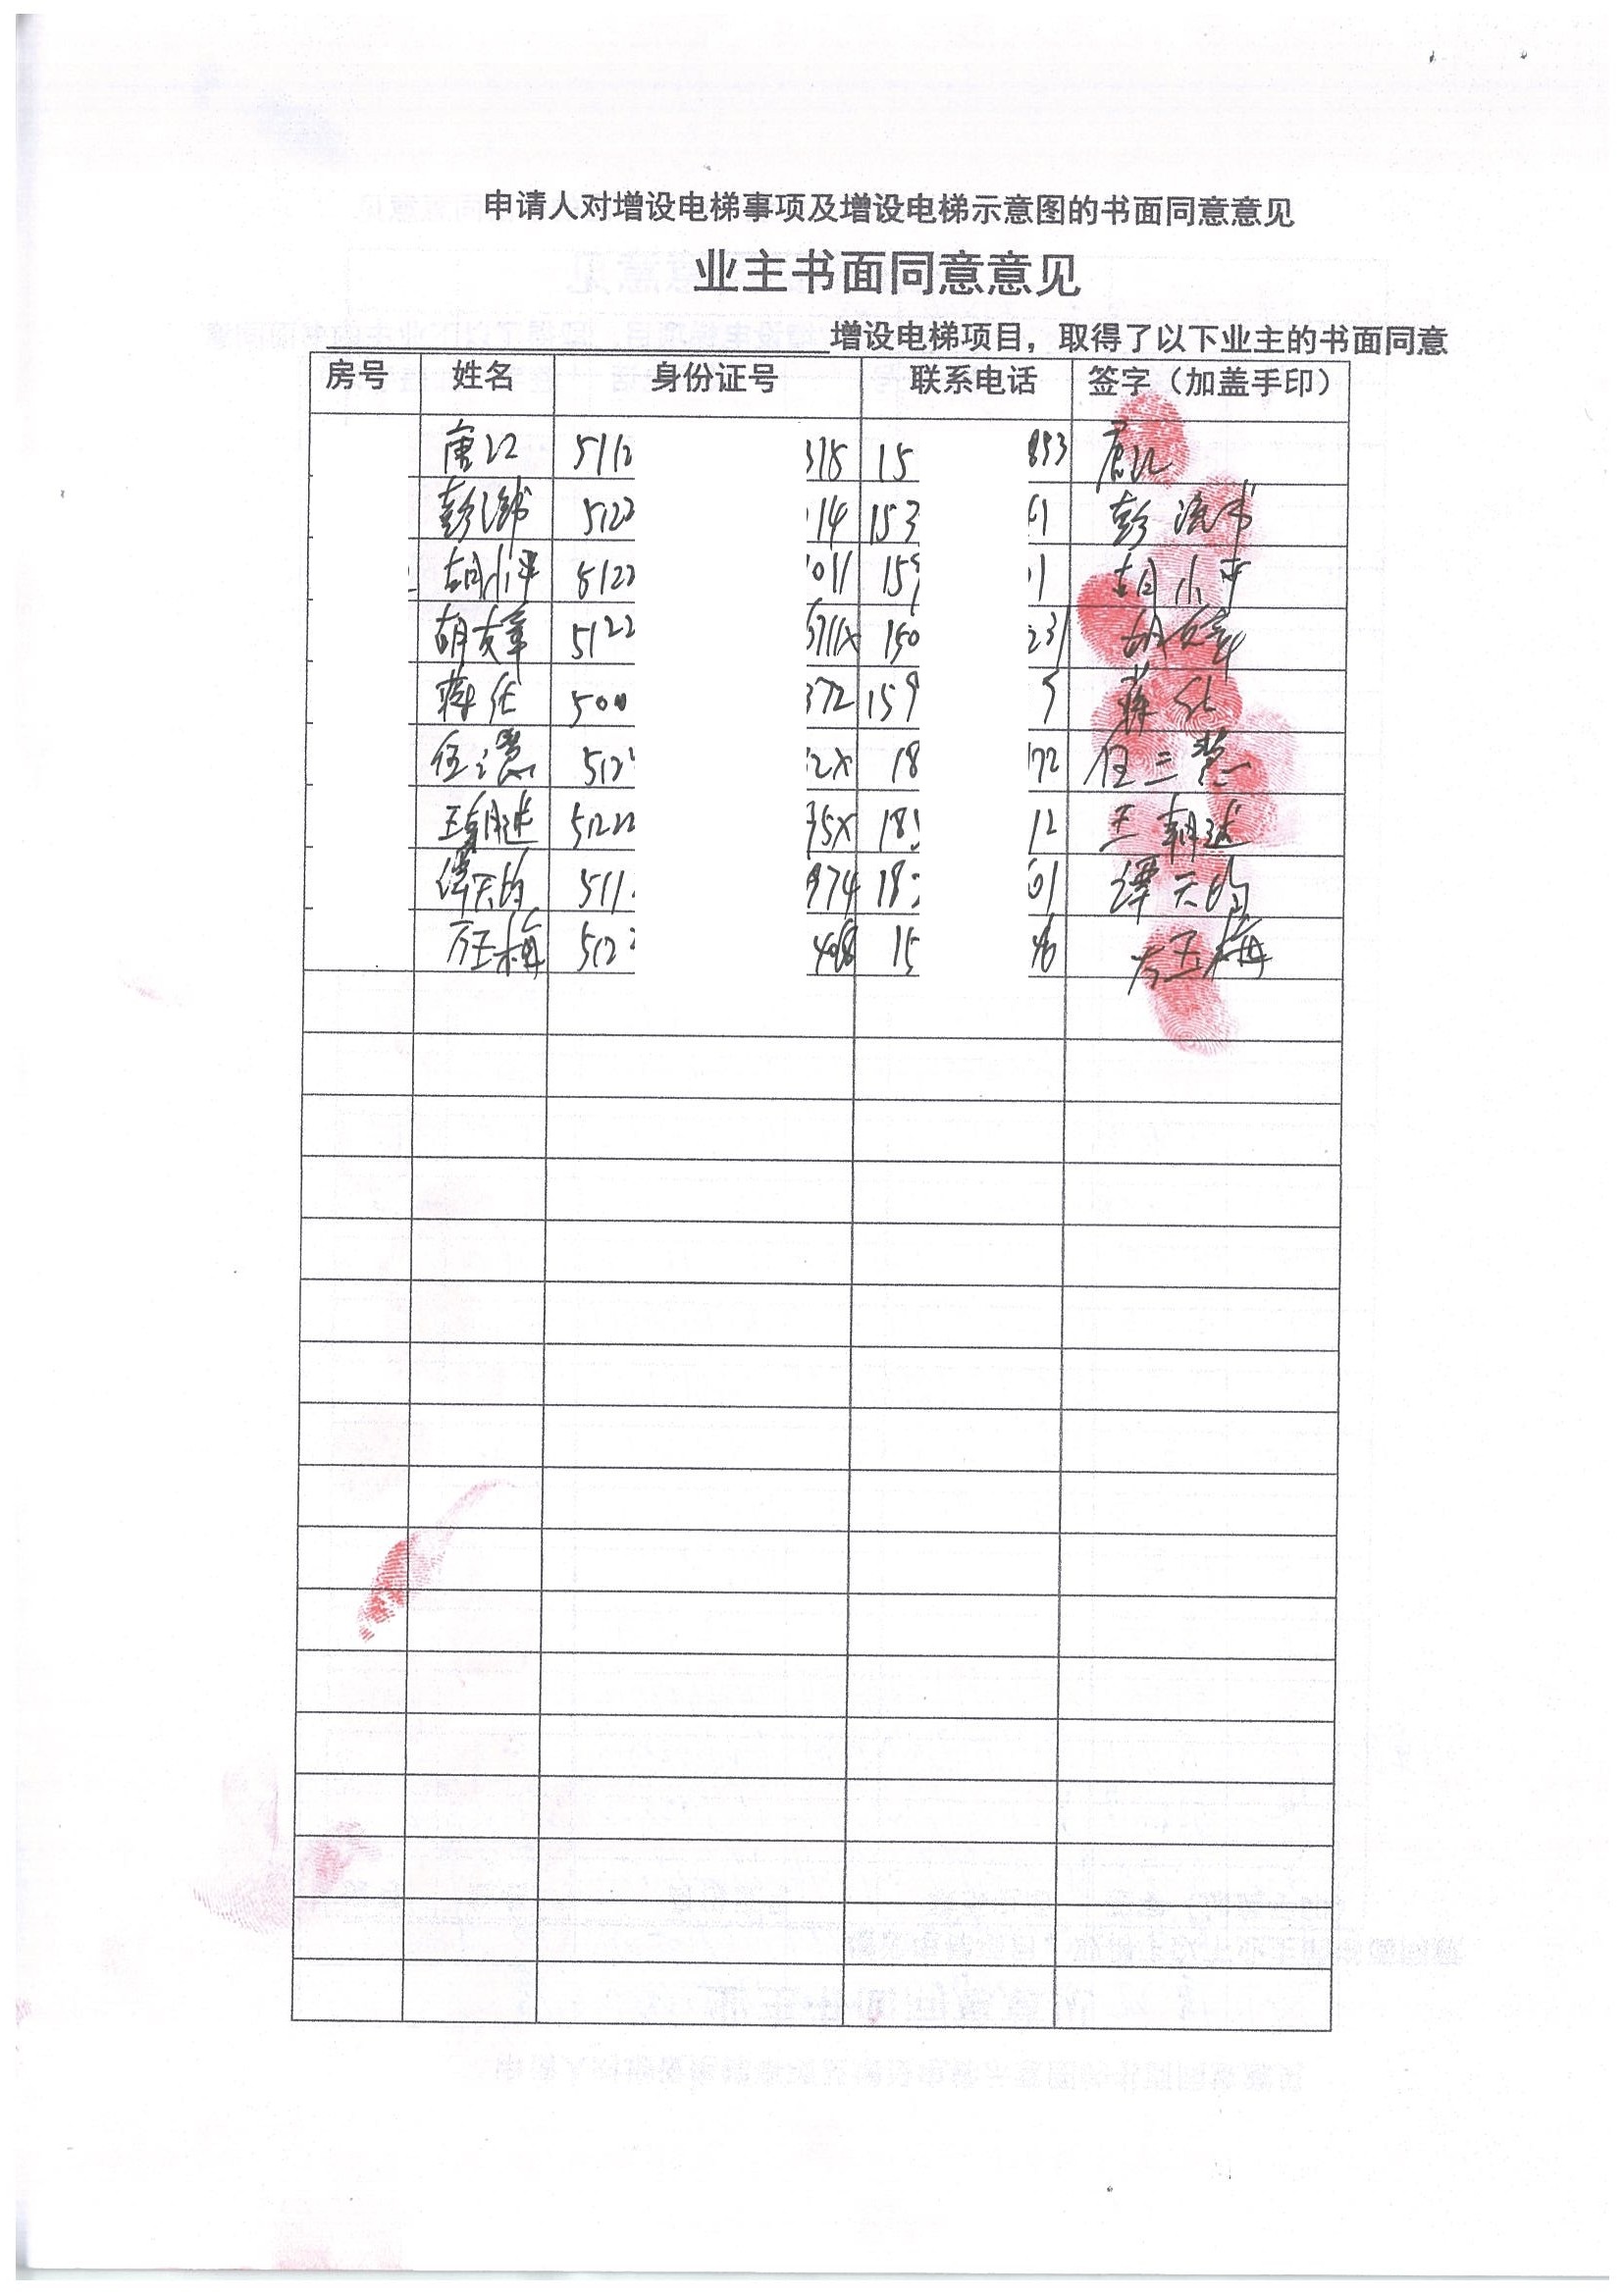 申请人对增设电梯事项及增设电梯示意图的书面同意意见
业主书面同意意见
增设电梯项目，取得了以下业主的书面同意
房号 姓名 身份证号 联系电话 签字（加盖手印）
唐江 5112 318 15 893 唐江
彭 5122 14 153 61 彭 书
胡小平 5122 011 159 1 胡小平
胡友章 5122 711X 150 231 胡友章
蒋 500 372 159 5 蒋
任三慧 512 2X 18 72 任三慧
王朝述 5122 75X 18 12 王朝述
谭天 511 974 18 01 谭天
方玉梅 512 408 15 46 方玉梅